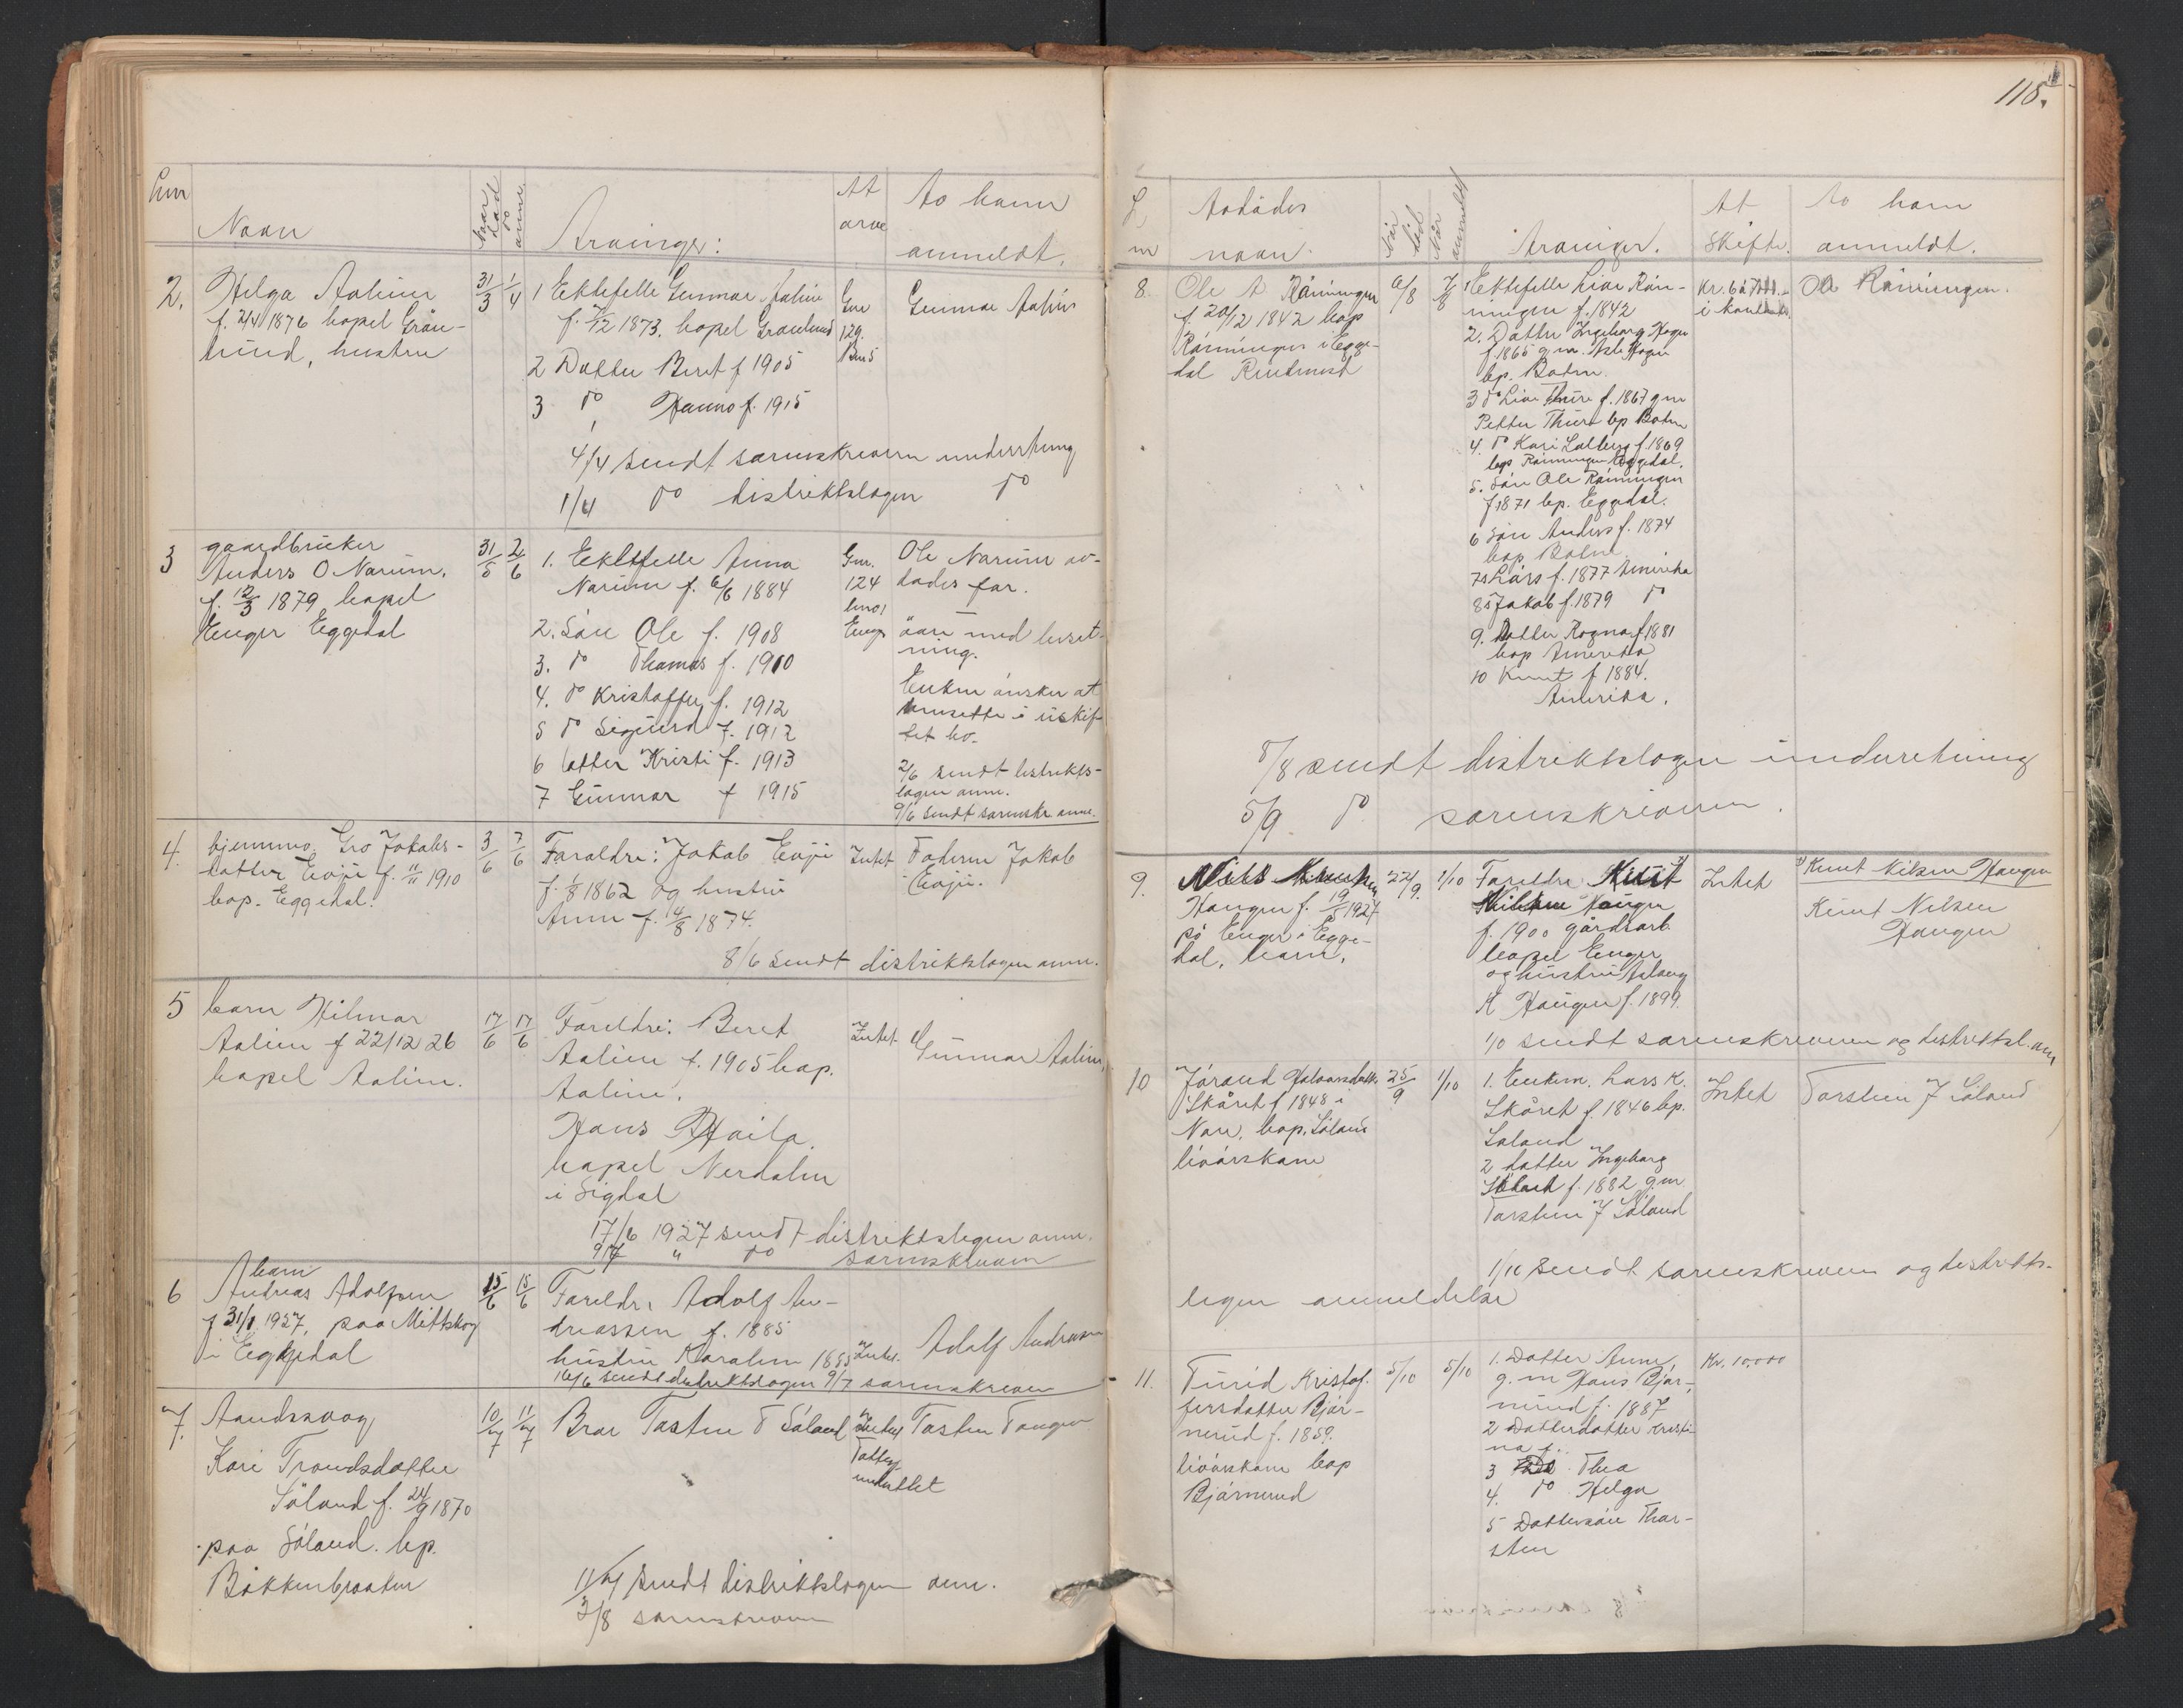 Lnr
Navn
Naar død
do anm.
Arvinger:
At arve
Av hvem
anmeldt.
2.
Helga Aalien
f. 2/4 1876 bopel Grøn-
lund, hustru
31/3
1/4
1 Ektefelle Gunnar Aalien
f. 7/12 1873. bopel Grønlund
2 Datter Beret f 1905
3 do Hanna f. 1915
4/4 sendt sorenskriveren underretning
1/4 do distriktslægen do
Gnr
129.
Bn 5
Gunnar Aalien
3
gaardbruker
Anders O Narum.
f. 12/3 1879 bopel
Enger Eggedal
31/5
2/6
1. Ektefelle Anna
Narum f. 6/6 1884
2. Søn Ole f. 1908
3. do Thomas f. 1910
4. do Kristoffer f. 1912
5 do Sigurd f. 1912
6 datter Kristi f. 1913
7 Gunnar f 1915
Gnr.
124
bno1
Enger
Ole Narum av-
dødes far.
øvre med huset-
ning.
Enken ønsker at
hensette i uskif-
tet bo.
2/6 sendt distrikts-
lægen anm.
9/6 sendt sorenskr. anm.
4.
hjemmev. Gro Jakobs-
datter Evju f. 11/11 1910
bop. Eggedal.
3/6
7/6
Foraldre: Jakob Evju
f. 1/8 1862 og hustru
Anna f. 14/8 1874.
8/6 sendt distriktslægen anm.
Intet
Faderen Jakob
Evju.
5
barn Hilmar
Aalien f 22/12 26
bopel Aalien.
17/6
17/6
Foreldre: Beret
Aalien f. 1905 bop.
Aalien.
Hans Haila
bopel Nerdalen
i Sigdal
17/6 1927 sendt distriktslegen anm.
9/7 " do sorenskriveren
Intet
Gunnar Aalien
6
barn
Andreas Adolfsen
f 31/1 1927, paa Mittskog
i Eggedal
15/6
15/6
Foreldr: Adolf An-
dreassen f. 1885
hustru Karoline 1885
16/6 sendt distriktslægen 9/7 sorenskriver
Intet.
Adolf Andreasen
7.
Aandssvag
Kari Trondsdatter
Søland f. 24/9 1870
paa Søland. bp.
Bakkenbraaten
10/7
11/7
Bror Tosten T Søland
Intet
Fattig
understøttet
Tosten Tangen
11/7 sendt distriktslægen anm.
3/8 sorenskriveren
118.
L
nr
Avdødes
navn.
Når død
Når anmeldt
Arvinger.
At
skifte.
Av hvem
anmeldt.
8.
Ole A Rånningen
f 20/12 1842 bop
Rånningen i Egge-
dal
6/8
7/8
1 Ektefelle Liv Rån-
ningen f. 1842
2. Datter Ingeborg Hagen
f. 1865 g.m. Asle Hagen
bp. Solum.
3 do Live Thure f. 1867 g m
Petter Thure bp
4. do Kari Solberg f. 1869
bop Rånningen Eggedal.
5. Søn Ole Rånningen
f 1871 bp. Eggedal.
6 Søn Anders f. 1874
bop
7 s Lars f. 1877 Amerika
8 s Jakob f. 1879 do
9. Datter Ragna f. 1881
bop Amerika
10 Knut f 1884.
Amerika.
Kr. 6 à 7000.
i kontanter.
Ole Rånningen.
8/8 sendt distriktslægen underretning
5/9 do sorenskriveren.
9.
Nils Knutsen
Haugen f. 19/5 1927
på Enger i Egge-
dal, barn.
22/9.
1/10
Foreldre Knut
Nilsen Haugen
f. 1900 gårdsarb.
bopel Enger
og hustru Aslaug
K Haugen f. 1899.
Intet
Knut Nilsen Haugen
Knut Nilsen
Haugen
1/10 sendt sorenskriveren og distriktsl. anm
10
Jørand Halvorsdatt.
Skåret f 1848 i
Nore, bop. Søland
livårskone
25/9
1/10
1. Enkem. Lars K.
Skåret f. 1846 bp.
Søland
2 datter Ingeborg
Søland f. 1882 g.m
Torsten J Søland
Intet
Torsten J Søland
1/10 sendt sorenskriveren og distrikts-
legen anmeldelse
11.
Turid Kristof-
fersdatter Bjør-
nerud f. 1859.
livårskone bop
Bjørnerud
5/10
5/10
1. Datter Anne,
g. m Hans Bjør-
nerud f. 1887
2 Datterdatter Kristi-
na f..
3 do Thea
4. do Helga
5 Dattersøn Thor-
sten
Kr. 10,000